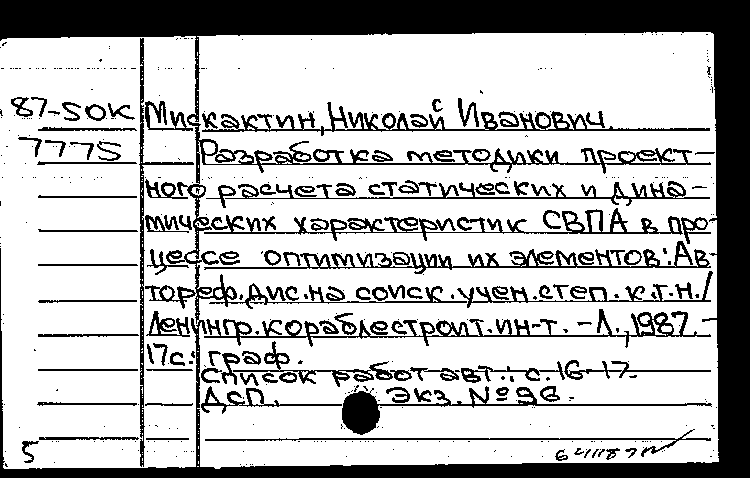 87-50к Мискактин, Николай Иванович.
7775 Разработка методики проект-
ного расчета статических и дина-
мических характеристик СВПА в про-
цессе оптимизации их элементов: Ав-
тореф. дис. на соиск. учен. степ. к.т.н./
Ленингр. кораблестроит. ин-т. - Л., 1987. -
17с.: граф.
Список работ авт.: с. 16-17.
ДСП. Экз. № 96.
5